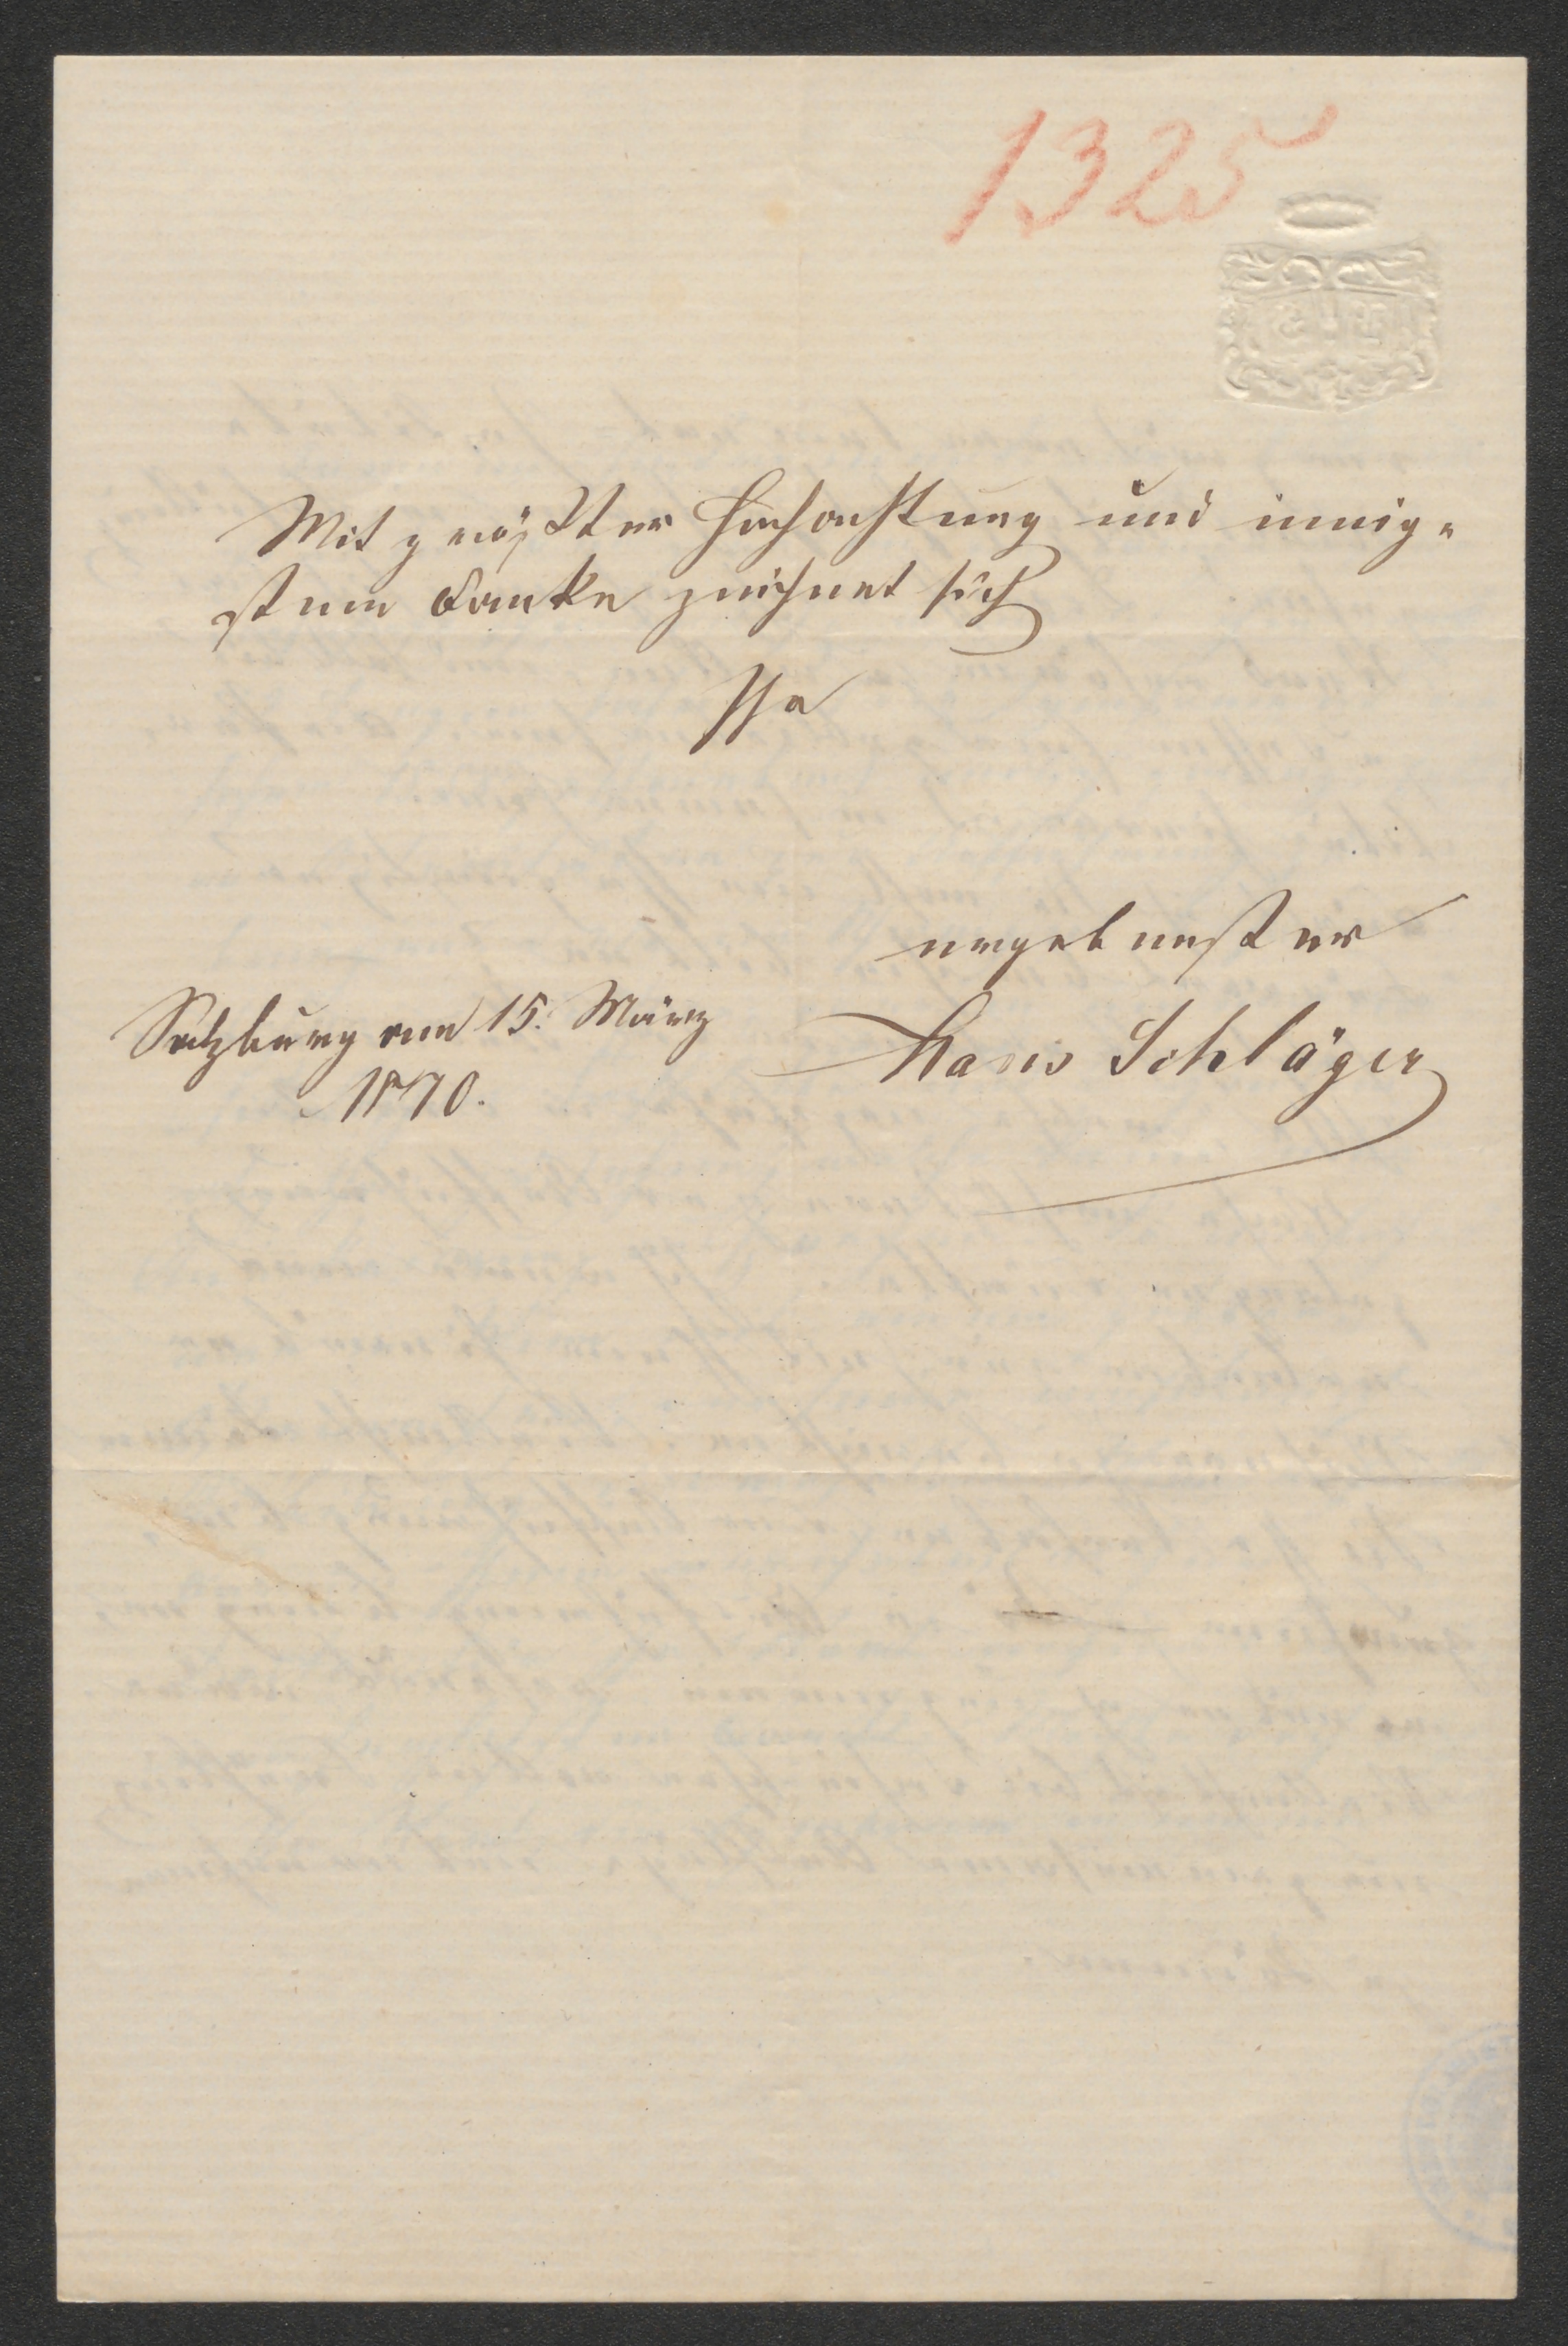 1325
Mit größter Hochachtung und innig-
stem Danke zeichnet sich
Ihr
ergebenster
Hans Schläger
Salzburg am 15. März
1870.